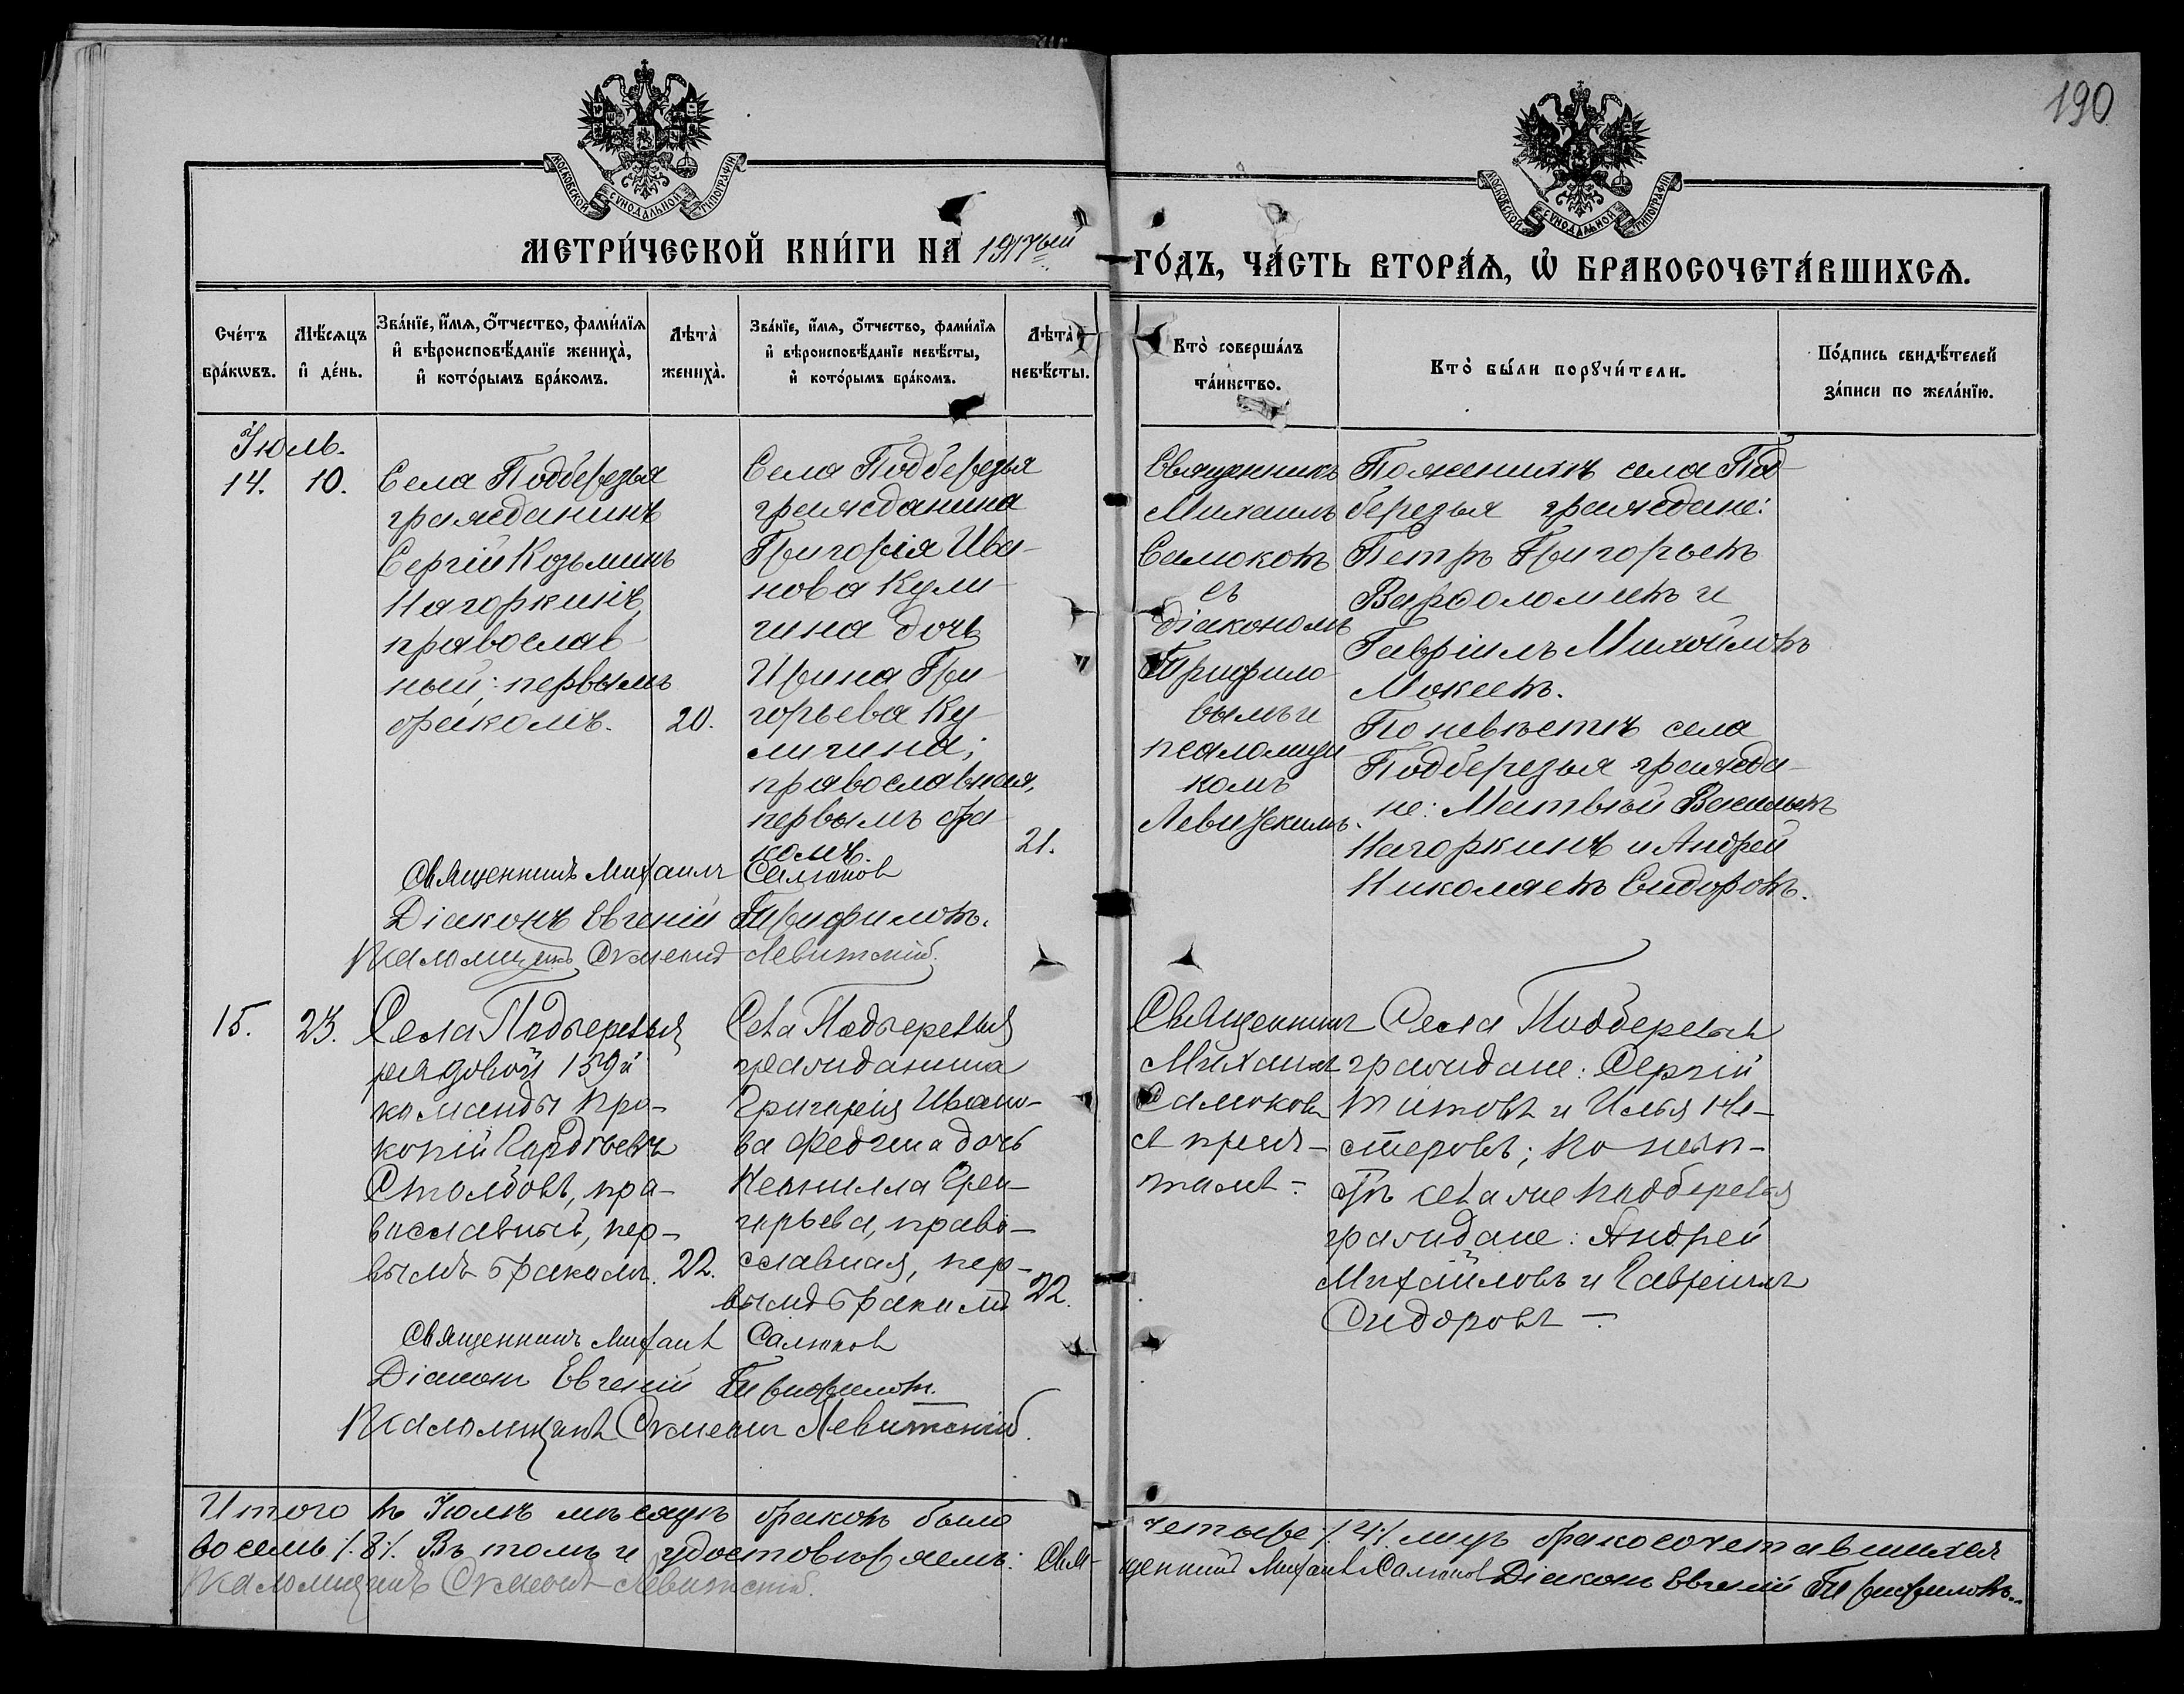 190
МОСКОВСКОЙ СѴНОДАЛЬНОЙ ТИПОГРАФІИ
МОСКОВСКОЙ СѴНОДАЛЬНОЙ ТИПОГРАФІИ
МЕТРИ́ЧЕСКОЙ КНИ́ГИ НА 1917ый
ГО́ДЪ, ЧА́СТЬ ВТОРА́Ѧ, Ѡ҆ БРАКОСОЧЕТА́ВШИХСѦ.
Сче́тъ
бра́кѡвъ.
Мѣ́сѧцъ
и҆ де́нь.
Зва́нїе, и҆́мѧ, ѻ҆́тчество, фами́лїѧ
и҆ вѣроисповѣ́данїе жениха̀,
и҆ кото́рымъ бра́комъ.
Лѣта̀
жениха̀.
Зва́нїе, и҆́мѧ, ѻ҆́тчество, фами́лїѧ
и҆ вѣроисповѣ́данїе невѣ́сты,
и҆ кото́рымъ бра́комъ.
Лѣта̀
невѣ́сты.
Кто̀ соверша́лъ
та́инство.
Кто̀ бы́ли порꙋчи́тели.
По́дпись свидѣ́телей
за́писи по жела́нїю.
Іюль.
14.
10.
Села Подберезья
гражданинъ
Сергій Козьминъ
Нагоркинъ,
православ
ный; первымъ
бракомъ.
20.
Села Подберезья
гражданина
Григорія Ива-
нова Кули-
гина дочь
Ирина Гри-
горьева Ку-
лигина;
православная,
первымъ бра
комъ.
21.
Священникъ
Михаилъ
Самоковъ
съ
діакономъ
Трифило-
вымъ и
псаломщи
комъ
Левитскимъ.
По женихѣ села Под-
березья граждане:
Петръ Григорьевъ
Варѳоломеевъ и
Гавріилъ Михайловъ
Мокеевъ.
По невѣстѣ села
Подберезья гражда-
не: Матвѣй Васильевъ
Нагоркинъ и Андрей
Николаевъ Сидоровъ.
Священникъ Михаилъ Самоков
Діаконъ Евгеній Трифиловъ.
Псаломщикъ Левитскій.
15.
23.
Села Подберезья
рядовой 159й
команды Про-
копій
православный, пер-
вымъ бракомъ.
22.
Села Подберезья
гражданина
Григорія Ивано-
ва дочь
Неонилла Гри-
горьева, право-
славная, пер-
вымъ бракомъ
22.
Священникъ
Михаилъ
Самоковъ
съ прич-
томъ.
Села Подберезья
граждане: Сергій
Титовъ и Илья Не-
стеровъ; по невѣ-
стѣ села же Подберезья
граждане: Андрей
Михайловъ и Гавріилъ
Сидоровъ.
Священникъ Михаилъ Самоков
Діаконъ Евгеній Трифиловъ.
Псаломщикъ Левитскій.
Итого въ Іюлѣ мѣсяцѣ браковъ было четыре /.4./ лицъ бракосочетавшихся
восемь /.8./. Въ томъ и удостовѣряемъ: Священникъ Михаилъ Самоков Діаконъ Евгеній Трифиловъ.
Псаломщикъ Левитскій.